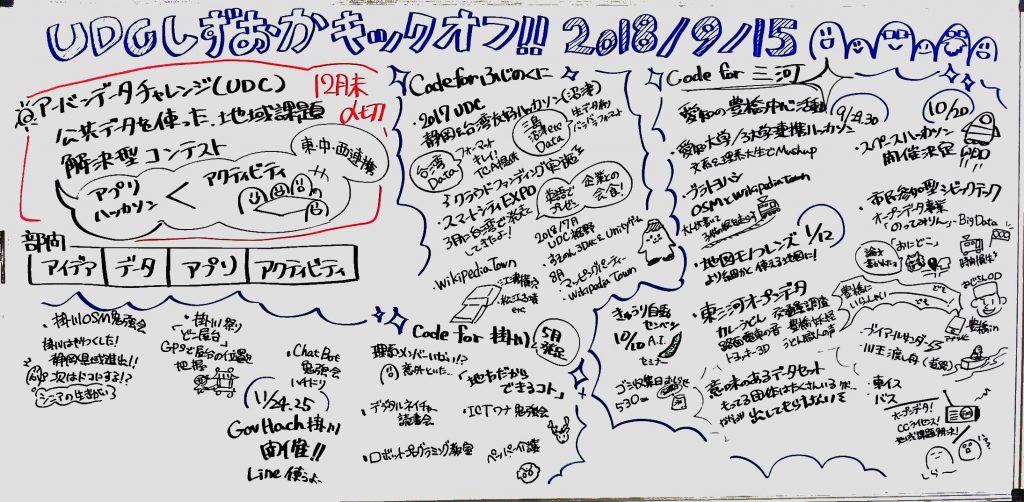 UDCしずおかキックオフ!! 2018/9/15
アーバンデータチャレンジ(UDC)
12月末〆切
公共データを使った地域課題
解決型コンテスト
東・中・西連携
アプリ
ハッカソン
<
アクティビティ
部門
アイデア
データ
アプリ
アクティビティ
Code for ふじのくに
・2017 UDC
静岡&台湾友好ハッカソン(沼津)
台湾
Data
フォーマット
キレイ!
TCA提供
三島
沼津etc
Data
生データあり
バラバラフォーマット
・クラウドファンディング実施
・スマートシティEXPO
3月に台湾で発表
してきたよ!
英語で
プレゼン
企業との
会食!
2018/7月
UDC裾野
8月
マッピングパーティー
・Wikipedia Town
・Wikipedia Town
etc
Code for 三河
愛知の豊橋中心に活動
愛知大学/3大学連携ハッカソン
文系&理系大生でMashup
・ブラトヨハシ
OSMとWikipedia Town
・地図モノフレンズ
1/12
・東三河オープンデータ
カレーうどん
交通量調査
路面電車の音
豊橋妖怪
トヨッキー3D
うどん職人の声
意味のあるデータセット
もってる団体はたくさんいるが、
なかなか出してもらえない
9/29.30
10/20
・スペースハッカソン
開催決定
・市民参加型シビックテック
オープンデータ事業
のってみりん
BigData
おじどこ
論文
豊橋に
いらんかい
でも
でも
おじさんOD
豊橋in
・ブイアールサンダー
・川王渡し舟
・車イス
バス
オープンデータ!
CCライセンス!
地域課題解決!
しら〜
・掛川OSM勉強会
掛川はやりつくした!
静岡県域進出!!
次はドコにする!?
シニアの生きがい
・掛川祭り
「ドコ屋台」
GPSで屋台の位置を
把握
・Chat Bot
勉強会
11/24.25
GovHack掛川
開催!!
Line使うよ
Code for 掛川
5月
発足
理系メンバーいない!?
意外といた…
・デジタルネイチャー
読書会
・ロボットプログラミング教室
・「地方だから
できるコト」
・ICTワナ勉強会
ペッパー介護
きゅうり自動
センベツ
10/10 A.I.
セミナー
530